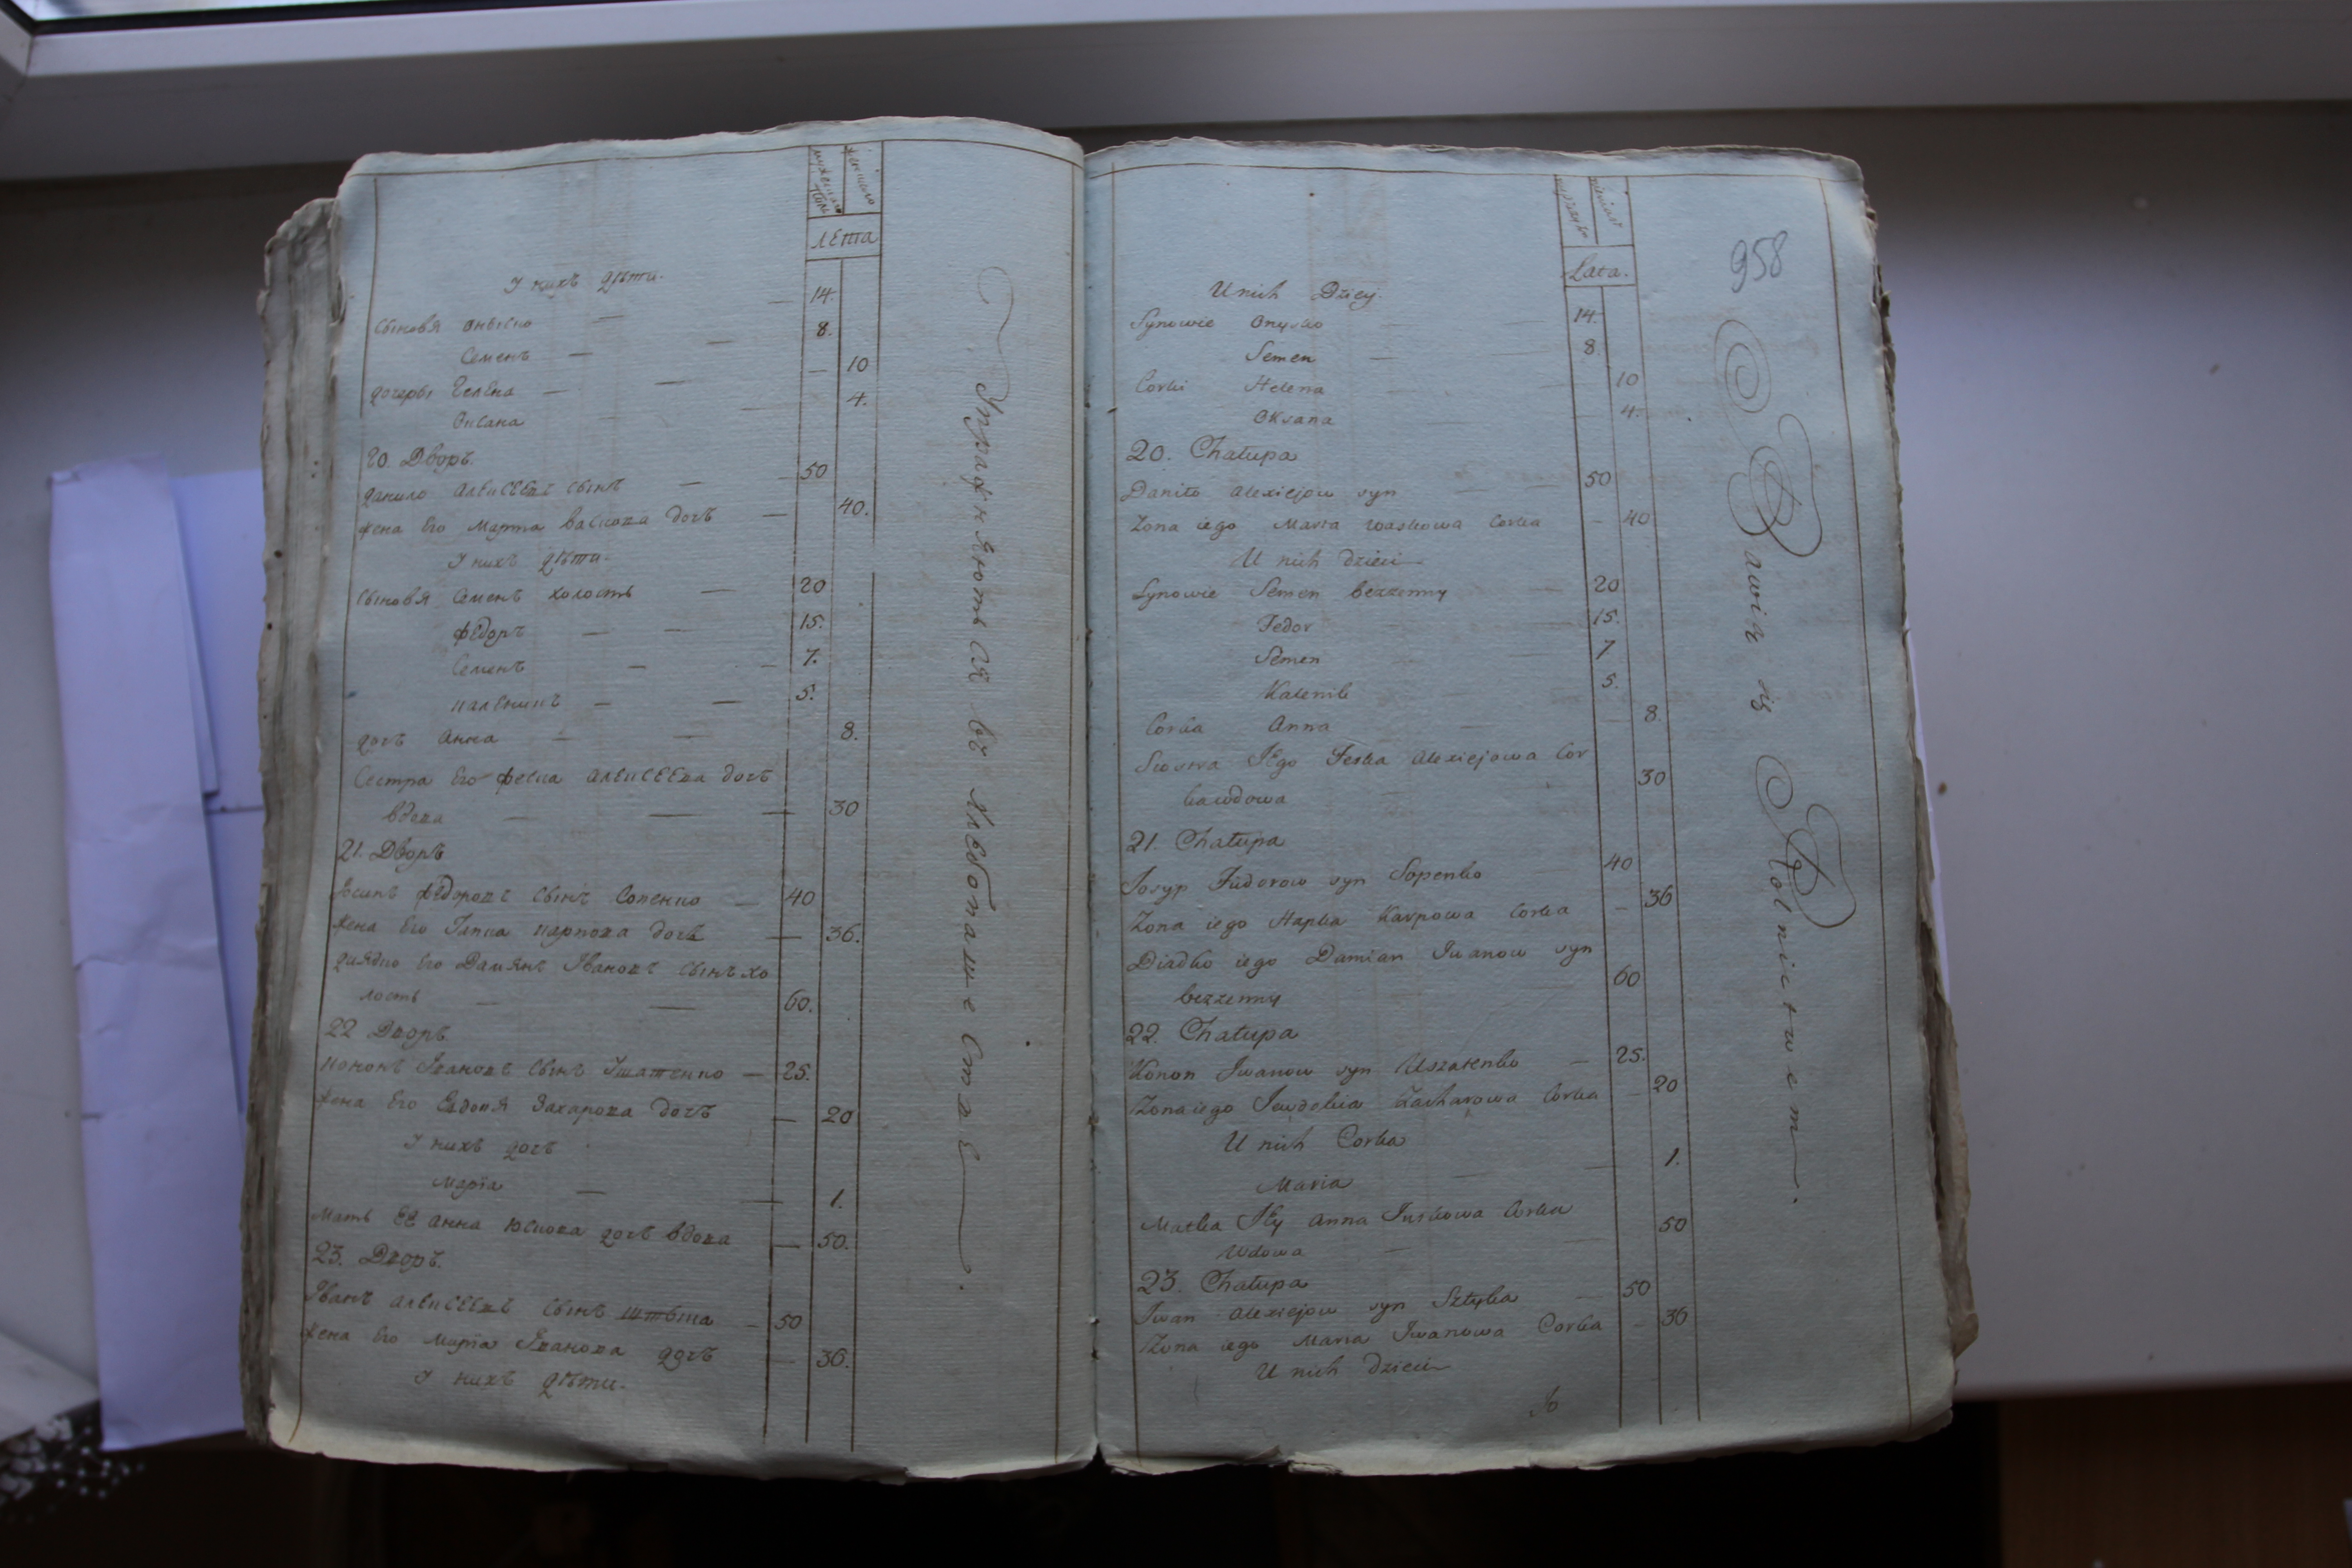 мужеска женска
пола
лѣта
У нихъ дѣти.
Сыновя Оныско — 14.
Семенъ — 8.
дочеры Гелена — 10
Оксана — 4.
20. Дворъ.
данило Алексѣевъ сынъ — 50
жена Его Марта васкова дочъ — 40.
У нихъ дѣти.
Сыновя Семенъ холостъ — 20
Федоръ — 15.
Семенъ — 7.
каленикъ — 5.
дочъ Анна — 8.
Сестра Его феска алексѣева дочъ
вдова — 30
21. Дворъ
Федоровъ сынъ Сопенко — 40
жена Его Гапка карпова дочъ — 36.
дядко Его Дамянъ Івановъ сынъ хо
лостъ — 60.
22 Дворъ.
кононъ Івановъ сынъ Ушатенко — 25.
жена Его Евдокія Захарова дочъ — 20
У нихъ дочъ
Марія — 1.
Мать Ее анна юскова дочъ вдова — 50.
23. Дворъ.
Іванъ алексѣевъ сынъ штыка — 50
жена Его Марія Іванова дочъ — 36.
У нихъ дѣти.
Упражняются въ хлебопашестве.
958
Lata.
U nich Dzieci.
Synowie Onysko — 14.
Semen — 8.
Corki Helena — 10
Oksana — 4.
20. Chałupa
Daniło Alexiejow syn — 50
Zona iego Marta waskowa Corka — 40
U nich dzieci
Synowie Semen bezzenny — 20
Fedor — 15.
Semen — 7
Kalenik — 5.
Corka Anna — 8.
Siostra IEgo Feska Alexiejowa Cor
ka wdowa — 30
21. Chałupa
Josyp Fiidorow syn Sopenko — 40
Zona iego Hapka Karpowa Corka — 36
Diadko iego Damian Iwanow syn
bezzenny — 60
22. Chałupa
Konon Iwanow syn Uszatenko — 25.
Zona iego Iewdokia Zacharowa Corka — 20
U nich Corka
Maria — 1.
Matka IEy Anna Juskowa Corka
Wdowa — 50
23. Chałupa
Iwan Alexiejow syn Sztyka — 50
Zona iego Maria Iwanowa Corka — 36
U nich dzieci
Bawią się Rolnictwem.